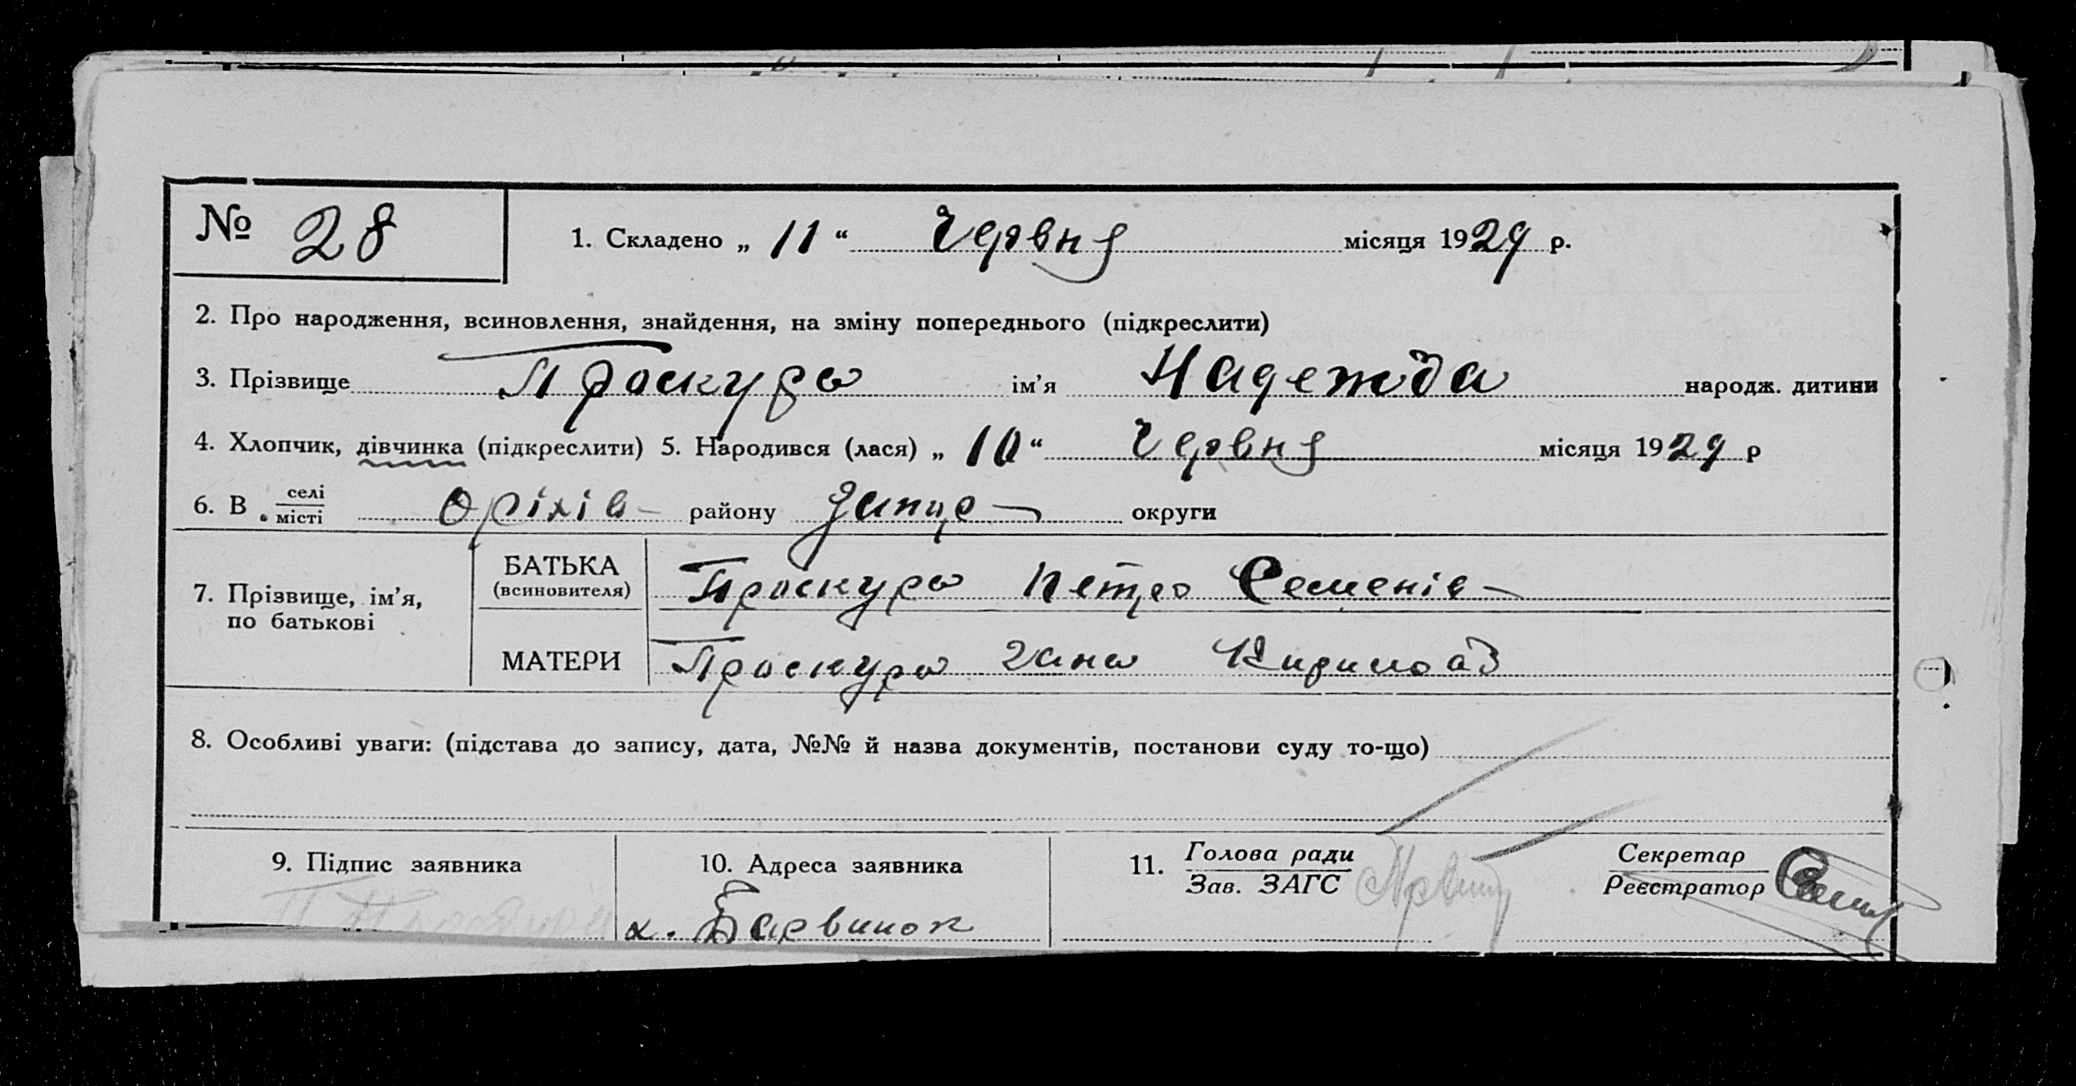 № 28 1. Складено „ 11 “ Червня місяця 1929 р.
2. Про народження, всиновлення, знайдення, на зміну попереднього (підкреслити)
3. Прізвище Проскура ім’я Надежда народж. дитини
4. Хлопчик, дівчинка (підкреслити) 5. Народився (лася) „ 10 “ Червня місяця 1929 р
6. В селі місті Оріхів району Запор округи
7. Прізвище, ім’я, по батькові
БАТЬКА (всиновителя) Проскура Петро Семенів
МАТЕРИ Проскура Гана
8. Особливі уваги: (підстава до запису, дата, №№ й назва документів, постанови суду то-що)
9. Підпис заявника 10. Адреса заявника 11. Голова ради Зав. ЗАГС Секретар Реєстратор
П Проскура х. Барвинок